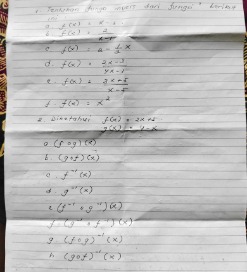 1. Tentukan fungsi invers dari fungsi berikut
a. f(x) =
b. f(x) = 2 / x-5
c. f(x) = 4 - 1/3 x
d. f(x) = 2x-3 / 4x-5
e. f(x) = 3x+5 / x-5
f. f(x) = x²
2. Diketahui f(x) = 2x+5
g(x) = 4-x
a (f o g)(x)
b. (g o f)(x)
c. f⁻¹(x)
d. g⁻¹(x)
e (f⁻¹ o g⁻¹)(x)
f. (g⁻¹ o f⁻¹)(x)
g. (f o g)⁻¹(x)
h. (g o f)⁻¹(x)